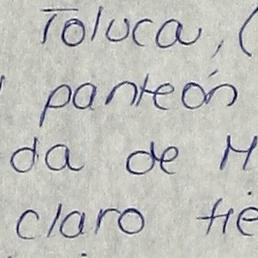 Toluca, (
panteón
da de M
claro tie